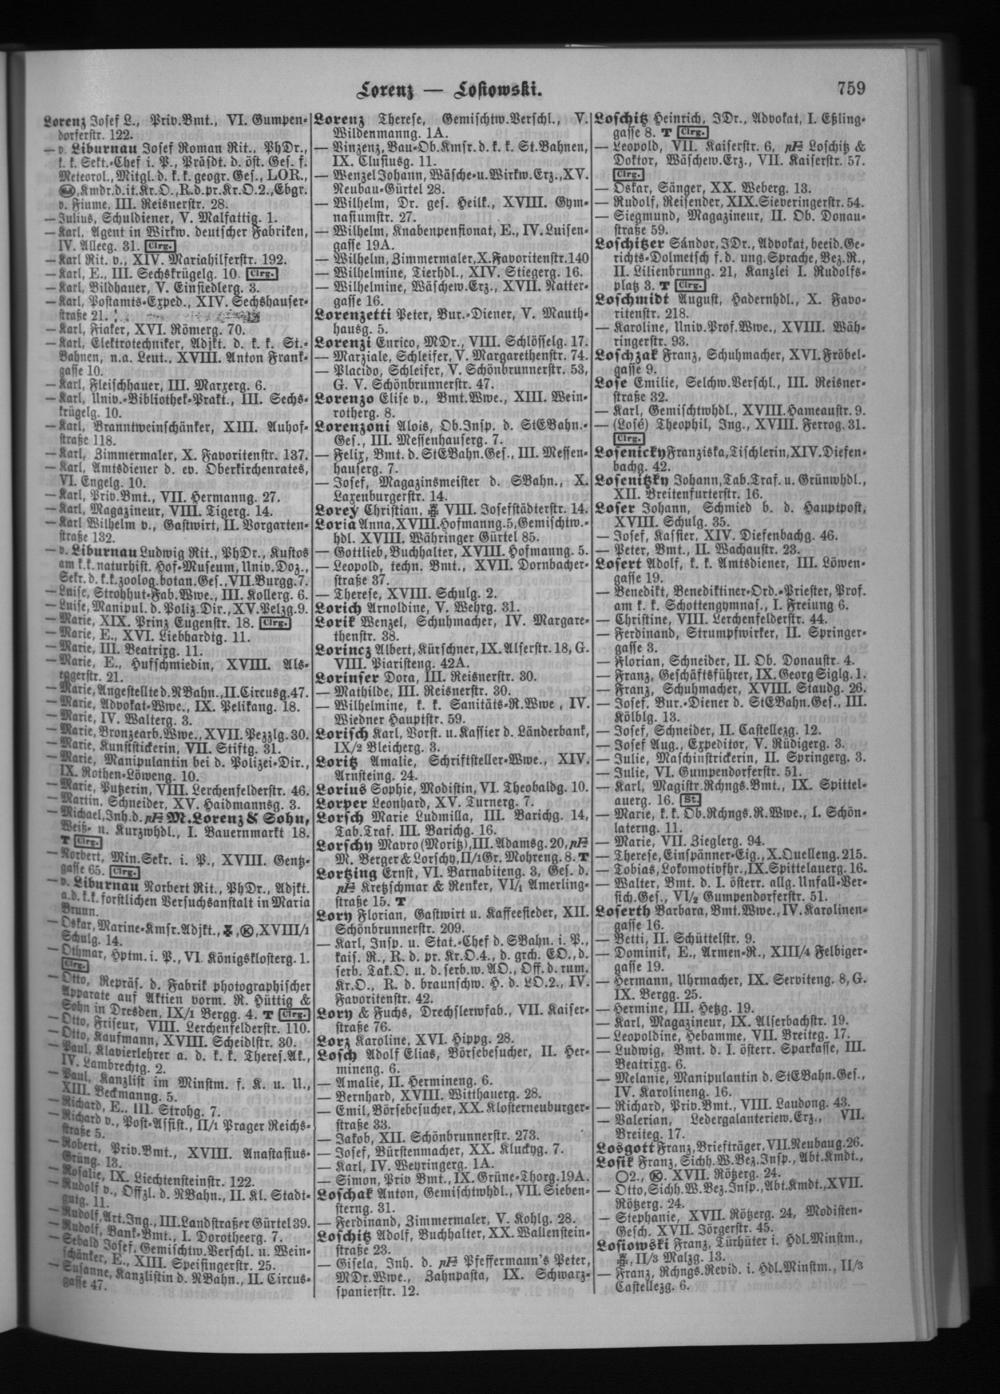 Lorenz — Losiowski.
759
Lorenz Josef L., Priv.Bmt., VI. Gumpen-
dorferstr. 122.
— v. Liburnau Josef Roman Rit., PhDr.,
k. k. Sekt.-Chef i. P., Präsdt. d. öst. Ges. f.
Meteorol., Mitgl. d. k. k. geogr. Ges., LOR.,
Kmdr.d.it.Kr.O., R.d.pr.Kr.O.2., Ehgr.
v. Fiume, III. Reisnerstr. 28.
— Julius, Schuldiener, V. Malfattig. 1.
— Karl, Agent in Wirkw. deutscher Fabriken,
IV. Alleeg. 31. Clrg.
— Karl Rit. v., XIV. Mariahilferstr. 192.
— Karl, E., III. Sechskrügelg. 10. Clrg.
— Karl, Bildhauer, V. Einsiedlerg. 3.
— Karl, Postamts-Exped., XIV. Sechshauser-
straße 21.
— Karl, Fiaker, XVI. Römerg. 70.
— Karl, Elektrotechniker, Adjkt. d. k. k. St.-
Bahnen, n.a. Leut., XVIII. Anton Frank-
gasse 10.
— Karl, Fleischhauer, III. Marxerg. 6.
— Karl, Univ.-Bibliothek-Prakt., III. Sechs-
krügelg. 10.
— Karl, Branntweinschänker, XIII. Auhof-
straße 118.
— Karl, Zimmermaler, X. Favoritenstr. 137.
— Karl, Amtsdiener d. ev. Oberkirchenrates,
VI. Engelg. 10.
— Karl, Priv.Bmt., VII. Hermanng. 27.
— Karl, Magazineur, VIII. Tigerg. 14.
— Karl Wilhelm v., Gastwirt, II. Vorgarten-
straße 132.
— v. Liburnau Ludwig Rit., PhDr., Kustos
am k.k.naturhist. Hof-Museum, Univ.Doz.,
Sekr. d. k.k.zoolog.botan.Ges., VII.Burgg.7.
— Luise, Strohhut-Fab.Wwe., III. Kollerg. 6.
— Luise, Manipul. d. Poliz.Dir., XV.Pelzg.9.
— Marie, XIX. Prinz Eugenstr. 18. Clrg.
— Marie, E., XVI. Liebhardtg. 11.
— Marie, III. Beatrixg. 11.
— Marie, E., Hufschmiedin, XVIII. Als-
eggerstr. 21.
— Marie, Angestellte d. NBahn., II.Circusg.47.
— Marie, Advokat-Wwe., IX. Pelikang. 18.
— Marie, IV. Walterg. 3.
— Marie, Bronzearb.Wwe., XVII. Pezzlg. 30.
— Marie, Kunststickerin, VII. Stiftg. 31.
— Marie, Manipulantin bei d. Polizei-Dir.,
IX. Rothen-Löweng. 10.
— Marie, Putzerin, VIII. Lerchenfelderstr. 46.
— Martin, Schneider, XV. Haidmannsg. 3.
— Michael, Inh.d. M. Lorenz & Sohn,
Weiß- u. Kurzwhdl., I. Bauernmarkt 18.
T Clrg.
— Norbert, Min.Sekr. i. P., XVIII. Gentz-
gasse 65. Clrg.
— v. Liburnau Norbert Rit., PhDr., Adjkt.
a.d.k.k.forstlichen Versuchsanstalt in Maria
Brunn.
— Oskar, Marine-Kmsr.Adjkt., XVIII/1
Schulg. 14.
— Othmar, Hptm. i. P., VI. Königsklosterg. 1.
Clrg.
— Otto, Repräs. d. Fabrik photographischer
Apparate auf Aktien vorm. R. Hüttig &
Sohn in Dresden, IX/1 Bergg. 4. T Clrg.
— Otto, Friseur, VIII. Lerchenfelderstr. 110.
— Otto, Kaufmann, XVIII. Scheidlstr. 30.
— Paul, Klavierlehrer a. d. k. k. Theres.Ak.,
IV. Lambrechtg. 2.
— Paul, Kanzlist im Minstm. f. K. u. U.,
XIII. Beckmanng. 5.
— Richard, E., III. Strohg. 7.
— Richard v., Post-Assist., II/1 Prager Reichs-
straße 5.
— Robert, Priv.Bmt., XVIII. Anastasius-
Grüng. 13.
— Rosalie, IX. Liechtensteinstr. 122.
— Rudolf v., Offzl. d. NBahn., II. Kl. Stadt-
gutg. 11.
— Rudolf, Art.Ing., III. Landstraßer Gürtel 39.
— Rudolf, Bank-Bmt., I. Dorotheerg. 7.
— Sebald Josef, Gemischtw.Verschl. u. Wein-
schänker, E., XIII. Speisingerstr. 25.
— Susanne, Kanzlistin d. NBahn., II. Circus-
gasse 47.
Lorenz Therese, Gemischtw.Verschl., V.
Wildenmanng. 1A.
— Vinzenz, Bau-Ob.Kmsr. d. k. k. St.Bahnen,
IX. Clusiusg. 11.
— Wenzel Johann, Wäsche-u.Wirkw.Erz., XV.
Neubau-Gürtel 28.
— Wilhelm, Dr. ges. Heilk., XVIII. Gym-
nasiumstr. 27.
— Wilhelm, Knabenpensionat, E., IV. Luisen-
gasse 19A.
— Wilhelm, Zimmermaler, X.Favoritenstr.140
— Wilhelmine, Tierhdl., XIV. Stiegerg. 16.
— Wilhelmine, Wäschew.Erz., XVII. Natter-
gasse 16.
Lorenzetti Peter, Bur.-Diener, V. Mauth-
hausg. 5.
Lorenzi Enrico, MDr., VIII. Schlösselg. 17.
— Marziale, Schleifer, V. Margarethenstr. 74.
— Placido, Schleifer, V. Schönbrunnerstr. 53,
G. V. Schönbrunnerstr. 47.
Lorenzo Elise v., Bmt.Wwe., XIII. Wein-
rotherg. 8.
Lorenzoni Alois, Ob.Insp. d. StEBahn.-
Ges., III. Messenhauserg. 7.
— Felix, Bmt. d. StEBahn.Ges., III. Messen-
hauserg. 7.
— Josef, Magazinsmeister d. SBahn., X.
Laxenburgerstr. 14.
Lorey Christian, VIII. Josefstädterstr. 14.
Loria Anna, XVIII.Hofmanng.5, Gemischtw.-
hdl. XVIII. Währinger Gürtel 85.
— Gottlieb, Buchhalter, XVIII. Hofmanng. 5.
— Leopold, techn. Bmt., XVII. Dornbacher-
straße 37.
— Therese, XVIII. Schulg. 2.
Lorich Arnoldine, V. Wehrg. 31.
Lorik Wenzel, Schuhmacher, IV. Margare-
thenstr. 38.
Lorincz Albert, Kürschner, IX. Alserstr. 18, G.
VIII. Piaristeng. 42A.
Lorinser Dora, III. Reisnerstr. 30.
— Mathilde, III. Reisnerstr. 30.
— Wilhelmine, k. k. Sanitäts-R.Wwe., IV.
Wiedner Hauptstr. 59.
Lorisch Karl, Vorst. u. Kassier d. Länderbank,
IX/2 Bleicherg. 3.
Loritz Amalie, Schriftsteller-Wwe., XIV.
Arnsteing. 24.
Lorius Sophie, Modistin, VI. Theobaldg. 10.
Lorper Leonhard, XV. Turnerg. 7.
Lorsch Marie Ludmilla, III. Barichg. 14,
Tab.Traf. III. Barichg. 16.
Lorschy Mavro (Moritz), III. Adamsg. 20,
M. Berger & Lorschy, II/1 Gr. Mohreng. 8. T
Lortzing Ernst, VI. Barnabiteng. 3, Ges. d.
Kretzschmar & Renker, VI/1 Amerling-
straße 15. T
Lory Florian, Gastwirt u. Kaffeesieder, XII.
Schönbrunnerstr. 209.
— Karl, Insp. u. Stat.-Chef d. SBahn. i. P.,
kais. R., R. d. pr. Kr.O.4., d. grch. EO., d.
serb. Tak.O. u. d. serb.w. AO., Off. d. rum.
Kr.O., R. d. braunschw. H. d. LO.2., IV.
Favoritenstr. 42.
Lory & Fuchs, Drechslerwfab., VII. Kaiser-
straße 76.
Lorz Karoline, XVI. Hippg. 28.
Losch Adolf Elias, Börsebesucher, II. Her-
mineng. 6.
— Amalie, II. Hermineng. 6.
— Bernhard, XVIII. Witthauerg. 28.
— Emil, Börsebesucher, XX. Klosterneuburger-
straße 33.
— Jakob, XII. Schönbrunnerstr. 273.
— Josef, Bürstenmacher, XX. Kluckyg. 7.
— Karl, IV. Weyringerg. 1A.
— Simon, Priv Bmt., IX. Grüne-Thorg. 19A.
Loschak Anton, Gemischtwhdl., VII. Sieben-
sterng. 31.
— Ferdinand, Zimmermaler, V. Kohlg. 28.
Loschitz Adolf, Buchhalter, XX. Wallenstein-
straße 23.
— Gisela, Inh. d. Pfeffermann's Peter,
MDr.Wwe., Zahnpasta, IX. Schwarz-
spanierstr. 12.
Loschitz Heinrich, JDr., Advokat, I. Eßling-
gasse 8. T Clrg.
— Leopold, VII. Kaiserstr. 6, Loschitz &
Doktor, Wäschew.Erz., VII. Kaiserstr. 57.
Clrg.
— Oskar, Sänger, XX. Weberg. 13.
— Rudolf, Reisender, XIX. Sieveringerstr. 54.
— Siegmund, Magazineur, II. Ob. Donau-
straße 59.
Loschitzer Sándor, JDr., Advokat, beeid. Ge-
richts-Dolmetsch f. d. ung. Sprache, Bez.R.,
II. Lilienbrunng. 21, Kanzlei I. Rudolfs-
platz 3. T Clrg.
Loschmidt August, Hadernhdl., X. Favo-
ritenstr. 218.
— Karoline, Univ.Prof.Wwe., XVIII. Wäh-
ringerstr. 93.
Loschzak Franz, Schuhmacher, XVI. Fröbel-
gasse 9.
Lose Emilie, Selchw.Verschl., III. Reisner-
straße 32.
— Karl, Gemischtwhdl., XVIII. Hameaustr. 9.
— (Losé) Theophil, Ing., XVIII. Ferrog. 31.
Clrg.
Losenicky Franziska, Tischlerin, XIV. Diefen-
bachg. 42.
Losenitzky Johann, Tab.Traf. u. Grünwhdl.,
XII. Breitenfurterstr. 16.
Loser Johann, Schmied b. d. Hauptpost,
XVIII. Schulg. 35.
— Josef, Kassier, XIV. Diefenbachg. 46.
— Peter, Bmt., II. Wachaustr. 23.
Losert Adolf, k. k. Amtsdiener, III. Löwen-
gasse 19.
— Benedikt, Benediktiner-Ord.-Priester, Prof.
am k. k. Schottengymnas., I. Freiung 6.
— Christine, VIII. Lerchenfelderstr. 44.
— Ferdinand, Strumpfwirker, II. Springer-
gasse 3.
— Florian, Schneider, II. Ob. Donaustr. 4.
— Franz, Geschäftsführer, IX. Georg Siglg. 1.
— Franz, Schuhmacher, XVIII. Staudg. 26.
— Josef, Bur.-Diener d. StEBahn.Ges., III.
Kölblg. 13.
— Josef, Schneider, II. Castellezg. 12.
— Josef Aug., Expeditor, V. Rüdigerg. 3.
— Julie, Maschinstrickerin, II. Springerg. 3.
— Julie, VI. Gumpendorferstr. 51.
— Karl, Magistr.Rchngs.Bmt., IX. Spittel-
auerg. 16. St.
— Marie, k. k. Ob.Rchngs.R.Wwe., I. Schön-
laterng. 11.
— Marie, VII. Zieglerg. 94.
— Therese, Einspänner-Eig., X. Quelleng. 215.
— Tobias, Lokomotivfhr., IX. Spittelauerg. 16.
— Walter, Bmt. d. I. österr. allg. Unfall-Ver-
sich.Ges., VI/2 Gumpendorferstr. 51.
Loserth Barbara, Bmt.Wwe., IV. Karolinen-
gasse 16.
— Betti, II. Schüttelstr. 9.
— Dominik, E., Armen-R., XIII/4 Felbiger-
gasse 19.
— Hermann, Uhrmacher, IX. Serviteng. 8, G.
IX. Bergg. 25.
— Hermine, III. Hetzg. 19.
— Karl, Magazineur, IX. Alserbachstr. 19.
— Leopoldine, Hebamme, VII. Breiteg. 17.
— Ludwig, Bmt. d. I. österr. Sparkasse, III.
Beatrixg. 6.
— Melanie, Manipulantin d. StEBahn.Ges.,
IV. Karolineng. 16.
— Richard, Priv.Bmt., VIII. Laudong. 43.
— Valerian, Ledergalanteriew.Erz., VII.
Breiteg. 17.
Losgott Franz, Briefträger, VII. Neubaug. 26.
Losik Franz, Sichh.W.Bez.Insp., Abt.Kmdt.,
O2., XVII. Rötzerg. 24.
— Otto, Sichh.W.Bez.Insp., Abt.Kmdt., XVII.
Rötzerg. 24.
— Stephanie, XVII. Rötzerg. 24, Modisten-
Gesch. XVII. Jörgerstr. 45.
Losiowski Franz, Türhüter i. Hdl.Minstm.,
II/3 Malzg. 13.
— Franz, Rchngs.Revid. i. Hdl.Minstm., II/3
Castellezg. 6.